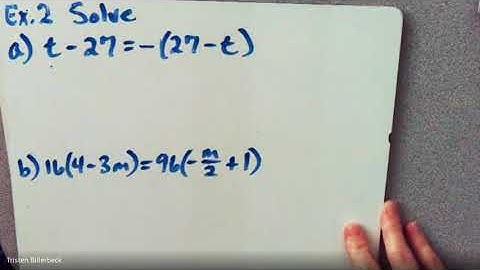 Ex.2 Solve
a) t - 27 = -(27 - t)
b) 16(4 - 3m) = 96(-m/2 + 1)
Tristen Billerbeck